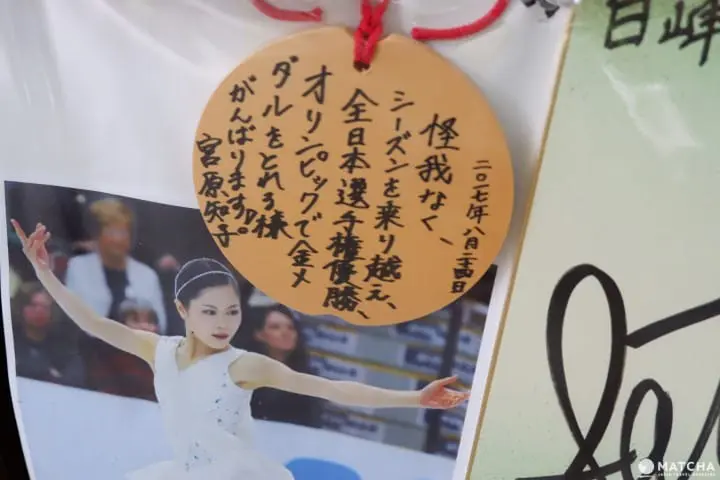 二〇一七年八月二十四日
怪我なく、
シーズンを乗り越え、
全日本選手権優勝、
オリンピックで金メ
ダルをとれる様
がんばります。
宮原知子
日峰
MATCHA